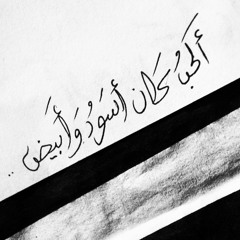 ألحبُ كان أسوَدُ وَأبيَض ..